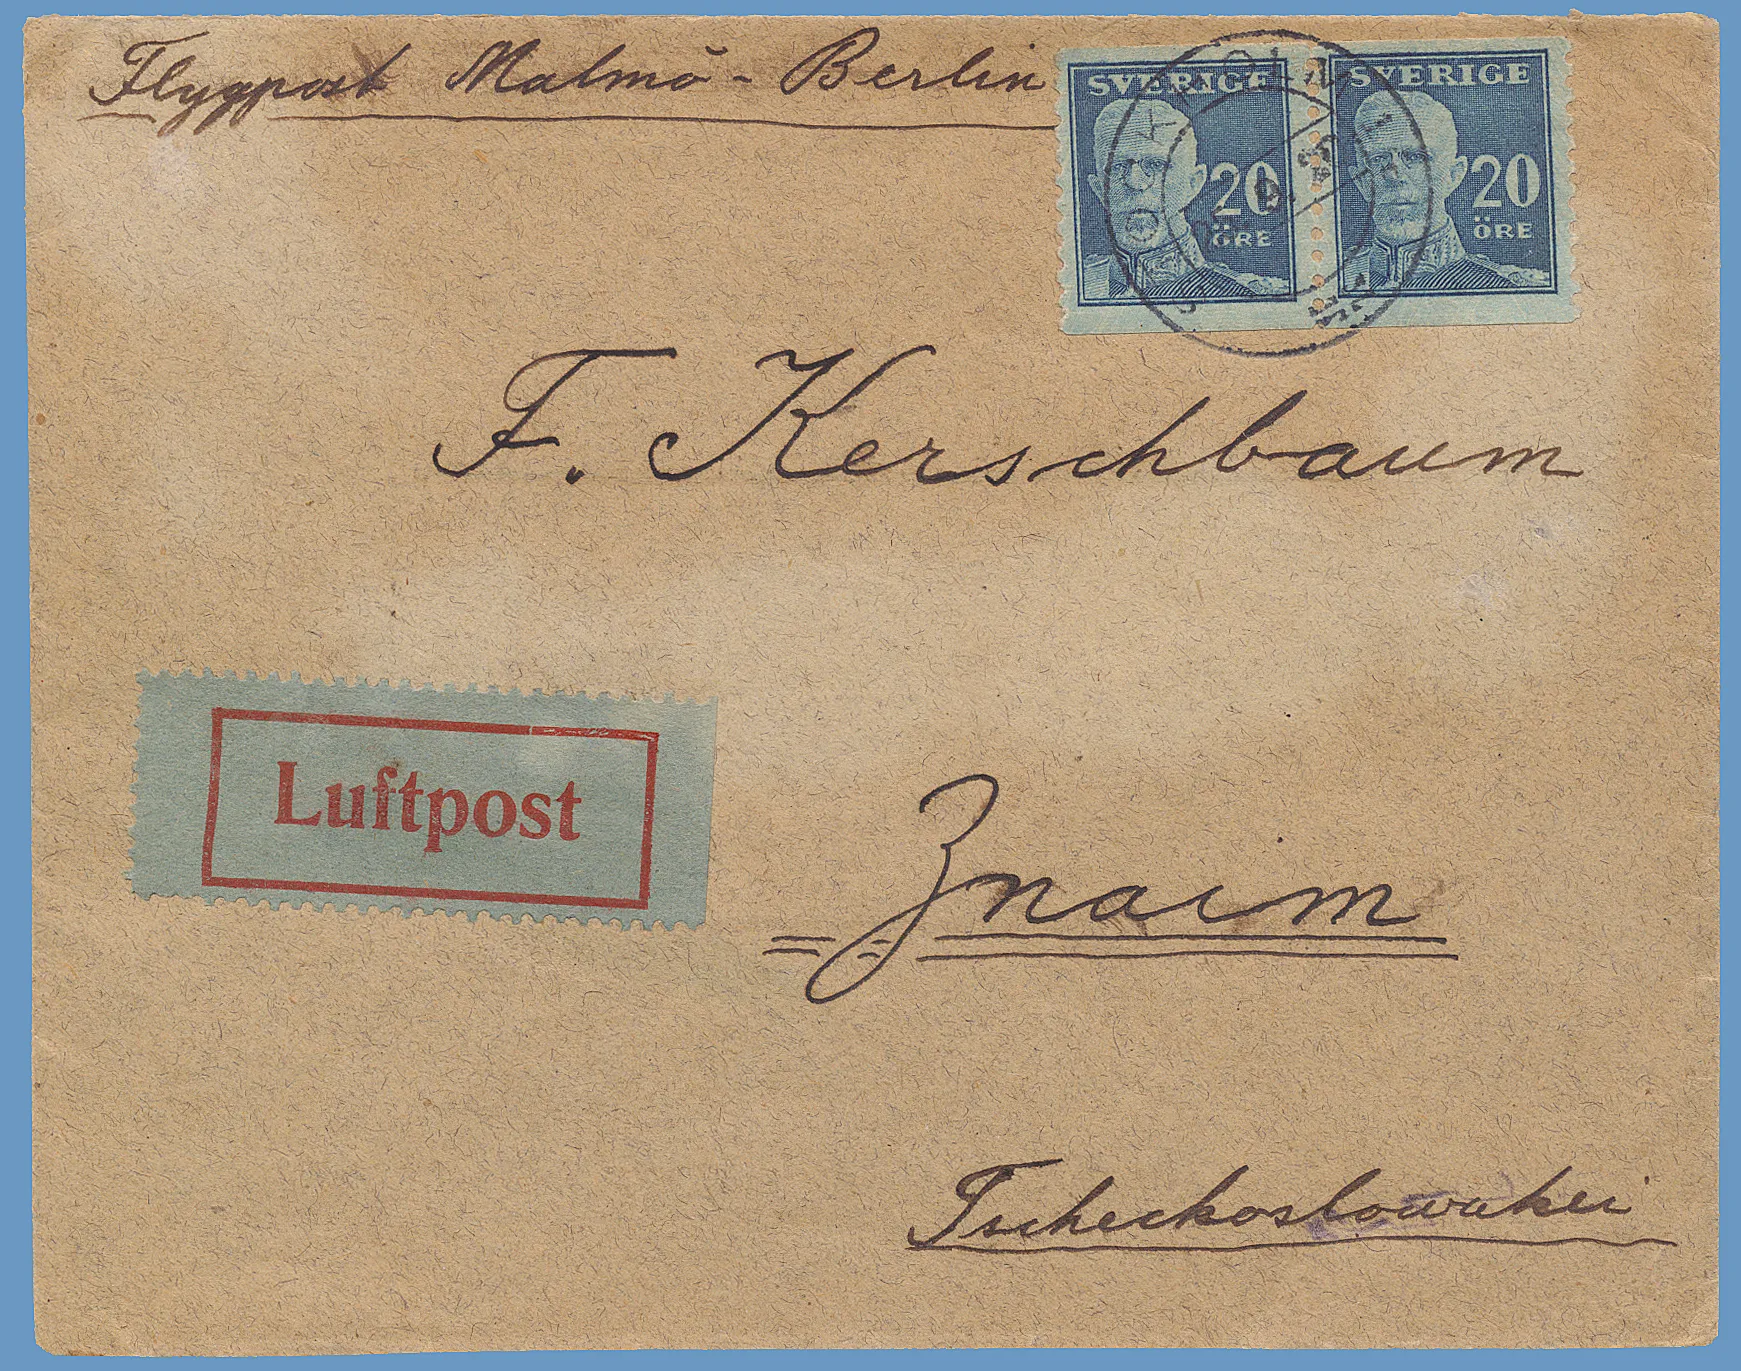 Flygpost Malmö - Berlin
SVERIGE
20
ÖRE
SVERIGE
20
ÖRE
F. Kerschbaum
Luftpost
Znaim
Tscheckoslowakei